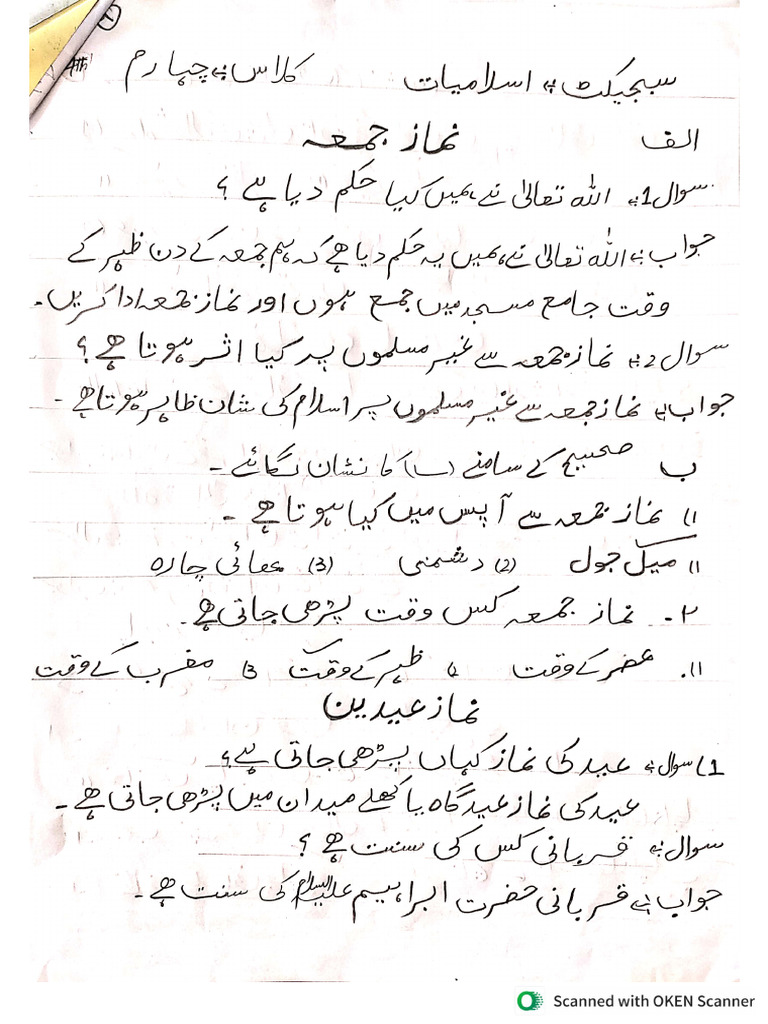 سبجیکٹ:۔ اسلامیات کلاس:۔ چہارم 4th
الف نماز جمعہ
سوال 1:۔ اللہ تعالیٰ نے ہمیں کیا حکم دیا ہے ؟
جواب:۔ اللہ تعالیٰ نے ہمیں یہ حکم دیا ہے کہ ہم جمعہ کے دن ظہر کے
وقت جامع مسجد میں جمع ہوں اور نماز جمعہ ادا کریں۔
سوال 2:۔ نماز جمعہ سے غیر مسلموں پر کیا اثر ہوتا ہے ؟
جواب:۔ نماز جمعہ سے غیر مسلموں پر اسلام کی شان ظاہر ہوتا ہے۔
ب صحیح کے سامنے (✓) کا نشان لگائے۔
1) نماز جمعہ سے آپس میں کیا ہوتا ہے۔
1) میل جول (2) دشمنی (3) بھائی چارہ
۲۔ نماز جمعہ کس وقت پڑھی جاتی ہے۔
1). عصر کے وقت 2) ظہر کے وقت 3) مغرب کے وقت
نماز عیدین
1) سوال:۔ عید کی نماز کہاں پڑھی جاتی ہے؟
عید کی نماز عید گاہ یا کھلے میدان میں پڑھی جاتی ہے۔
سوال:۔ قربانی کس کی سنت ہے ؟
جواب:۔ قربانی حضرت ابراہیم علیہ السلام کی سنت ہے۔
Scanned with OKEN Scanner